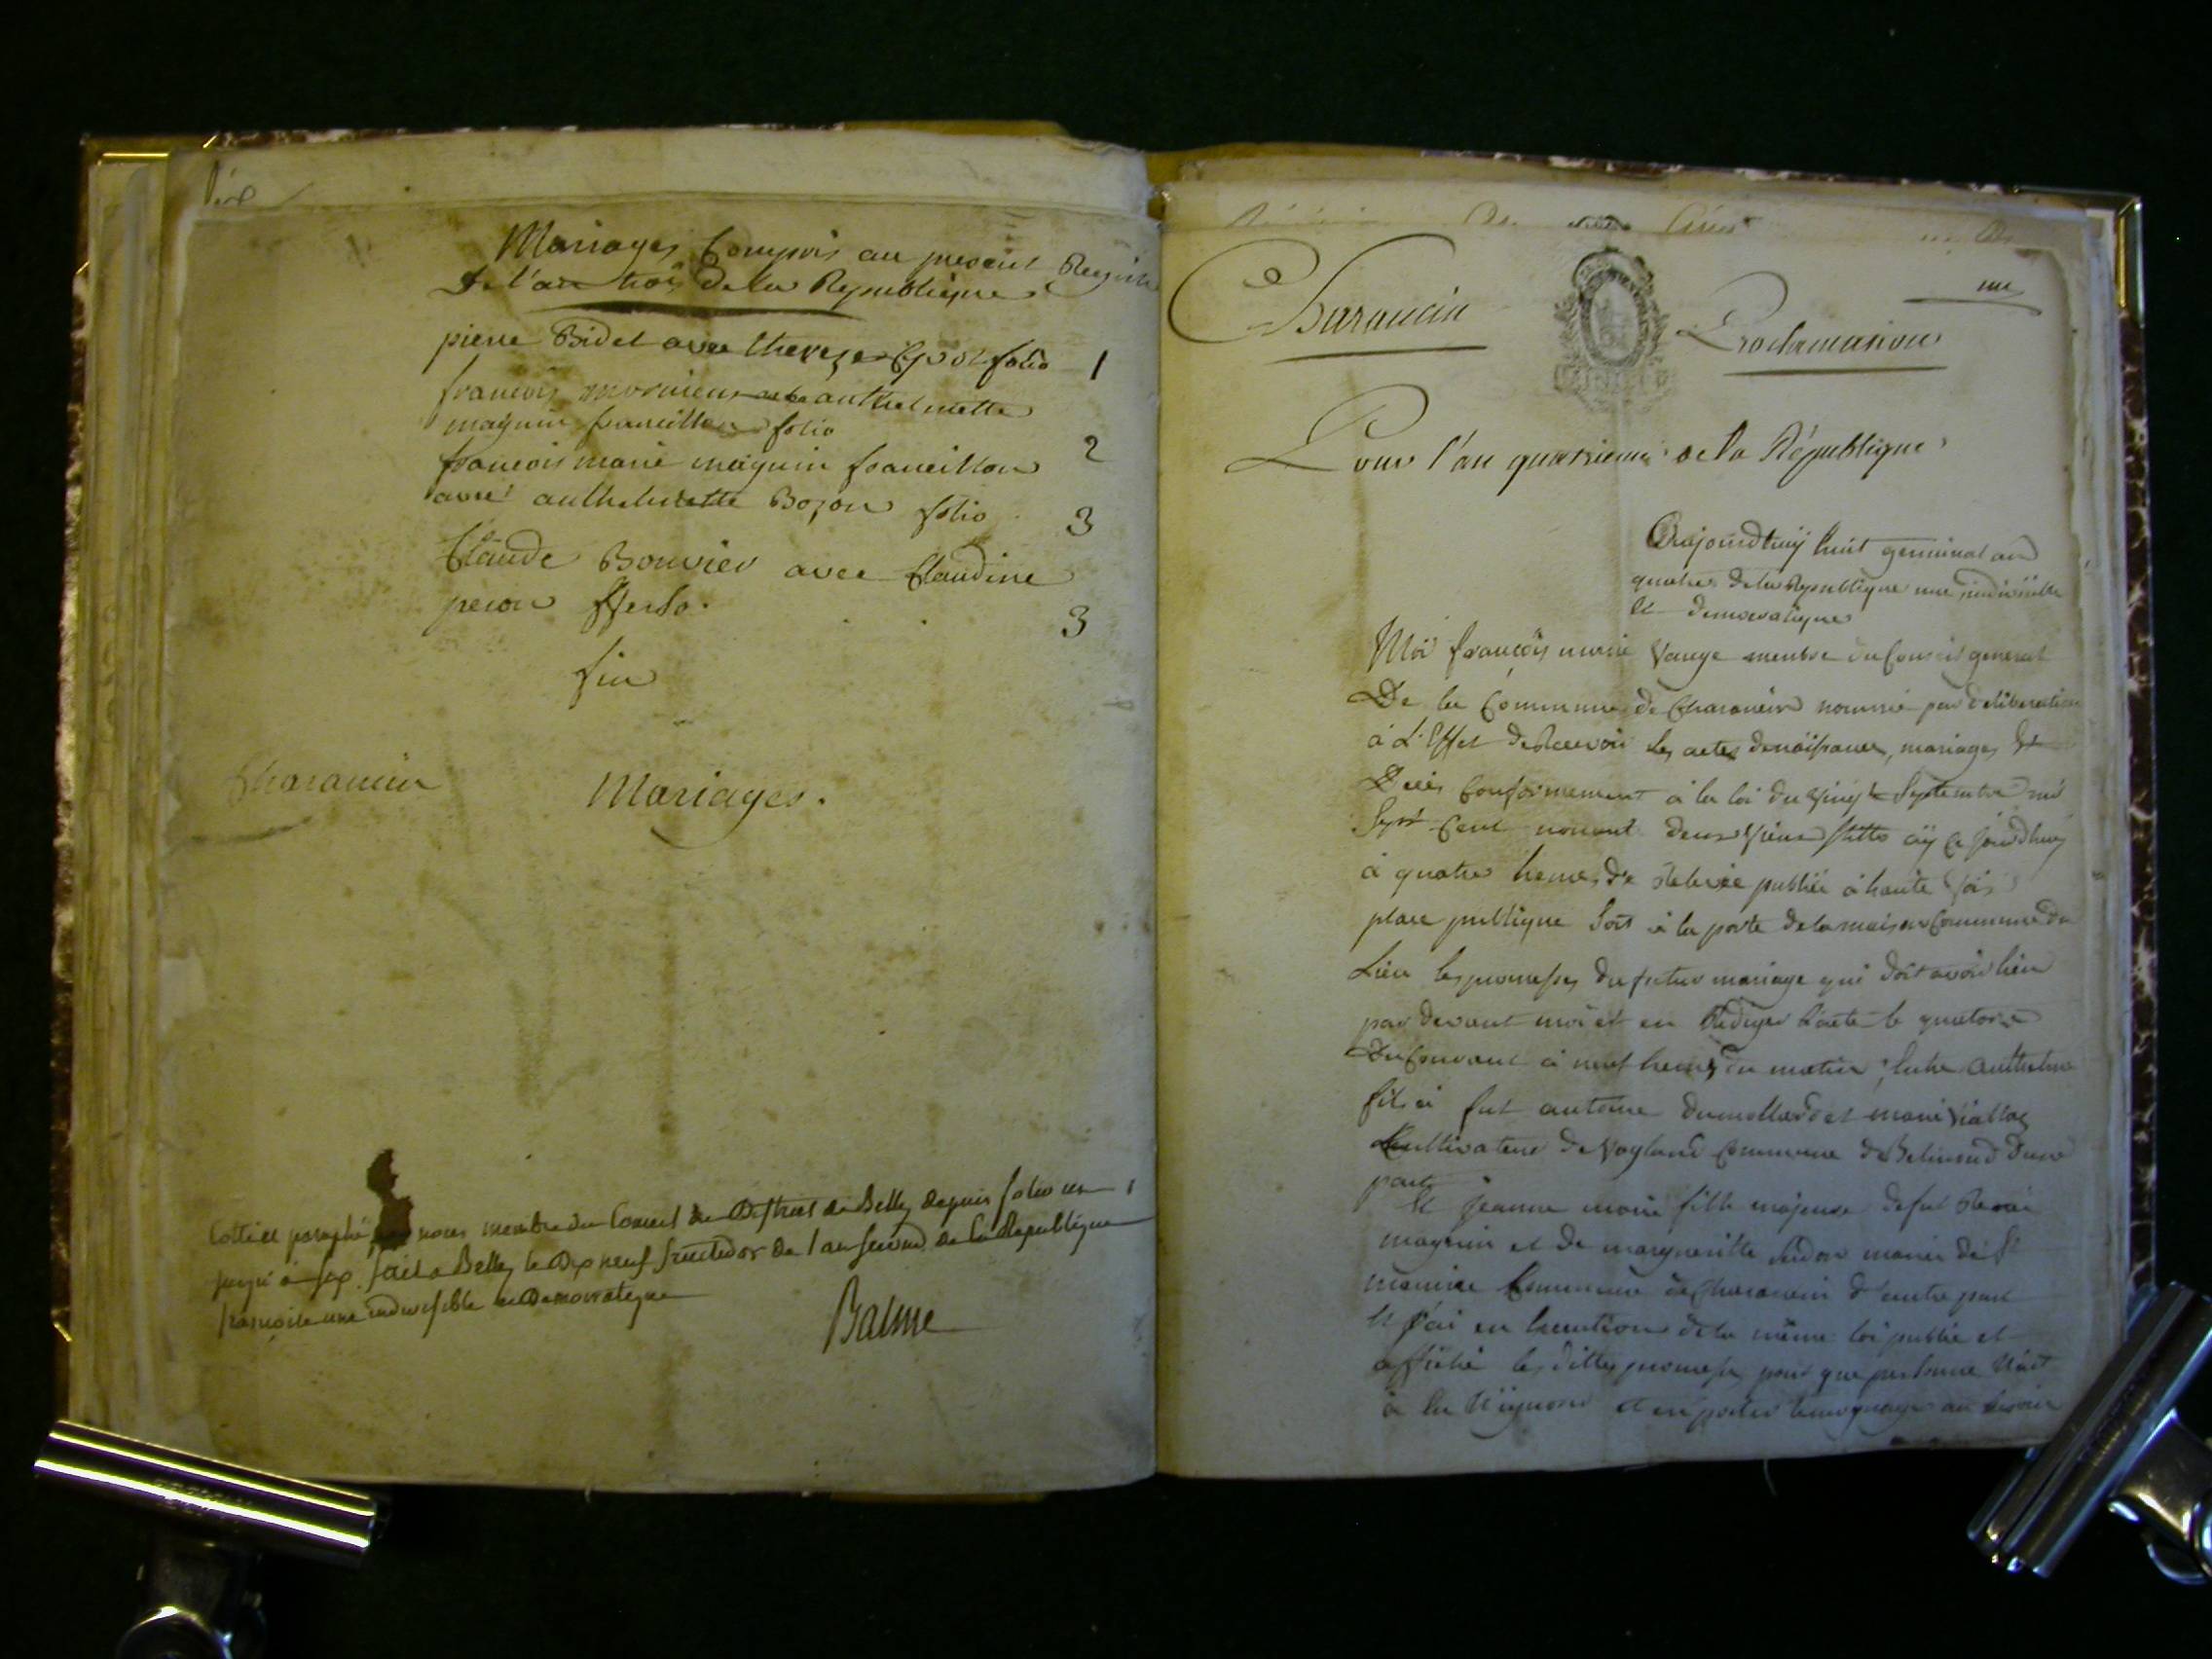 Mariages Compris au present Registre
De l'an trois de la Republique
pierre Bidet avec therese folio 1
francois anthelmette
maguin francillon folio 2
francois marie maguin francillon
avec anthelmette Bozon folio 3
Claude Bouvier avec Claudine
peron 3
fin
Charancin
Mariages.
Cotté et paraphé nous membre du Conseil du District de Belley depuis folio un
jusqu'a six fait a Belley le Dix neuf fructidor de l'an second de la Republique
francoise une indivisible et Democratique
Balme
un
Charancin
Proclamation
Pour l'an quatrieme de la République
Aujourdhuy huit germinal an
quatre de la Republique une indivisible
et democratique
Moi francois marie Vauge membre du Conseil general
De la Commune de Charancin nommé par deliberation
à L'Effet de Recevoir les actes de naissances, mariages et
Deces Conformement à la loi du vingt Septembre mil
Sept Cent nonant deux aÿ ce jourdhuy
à quatre heures de Relevée publiée à haute voix
place publique soit à la porte de la maison Commune du
Lieu les promesses du futur mariage qui doit avoir lieu
par devant moi et en Rediger l'acte le quatorze
Du Courant à neuf heures du matin, Entre Anthelme
fils à fut antoine dumollard et marie
Cultivateur de Vogland Commune de Belmond d'une
part
Et jeanne marie fille majeure de fut
maguin et de margueritte de St
maurice Commune de Charancin d'autre part
Et j'ai en Execution de la même loi publié et
affiché les dittes promesses pour que personne n'ait
à en porter temoignage au besoin